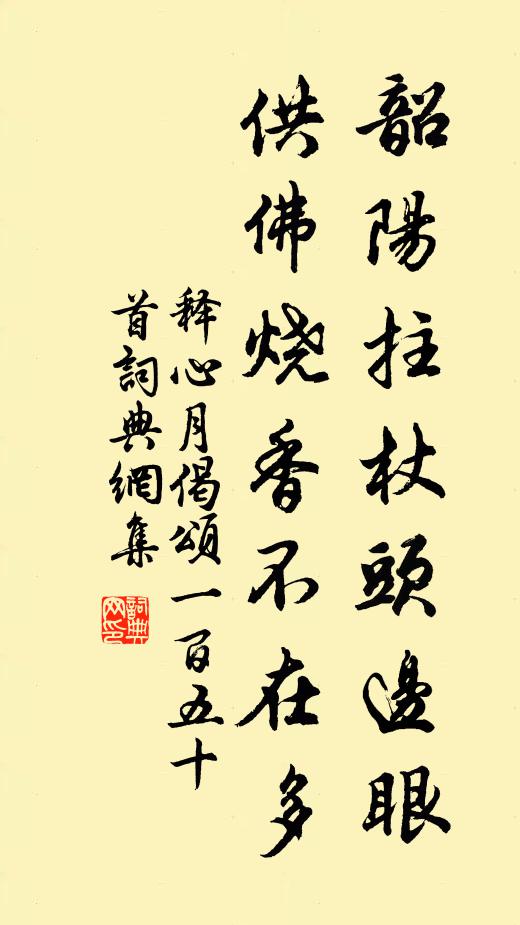 韶陽拄杖頭邊眼
供佛烧香不在多
释心月偈頌一百五十
首詞典網集
詞典
网印